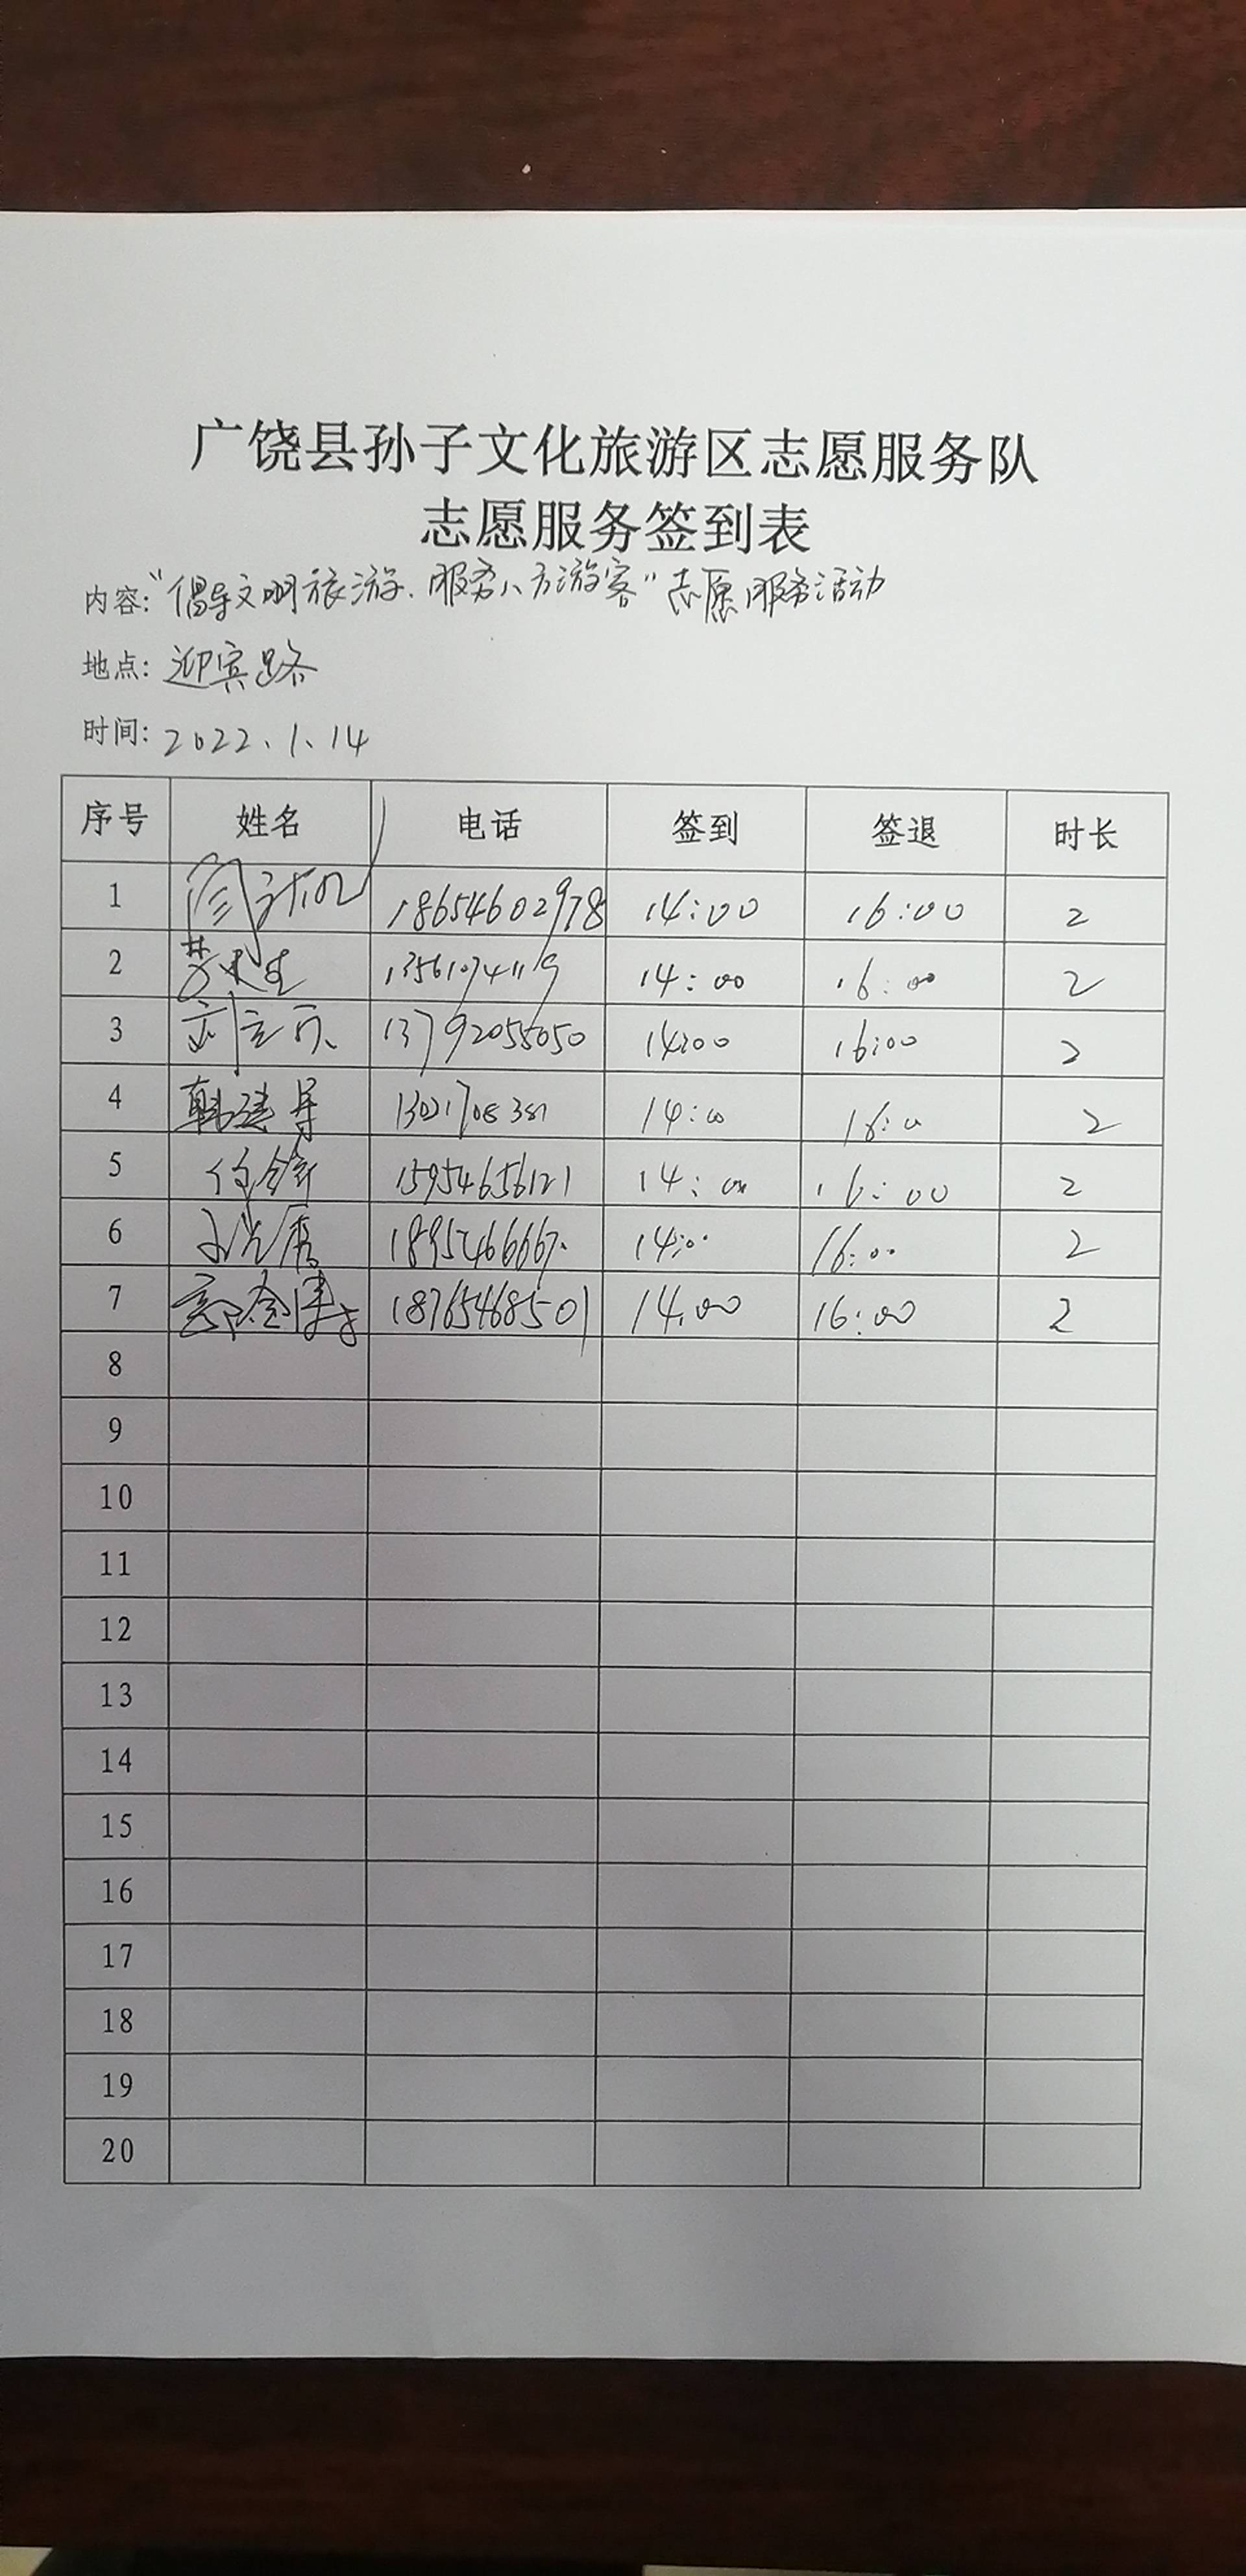 广饶县孙子文化旅游区志愿服务队
志愿服务签到表
内容：“倡导文明旅游、服务八方游客”志愿服务活动
地点：迎宾路
时间：2022、1、14
序号 姓名 电话 签到 签退 时长
1 18654602978 14:00 16:00 2
2 13561074119 14:00 16:00 2
3 13792055050 14:00 16:00 2
4 韩建军 14:00 16:00 2
5 15954656121 14:00 16:00 2
6 14:00 16:00 2
7 18765468501 14:00 16:00 2
8
9
10
11
12
13
14
15
16
17
18
19
20